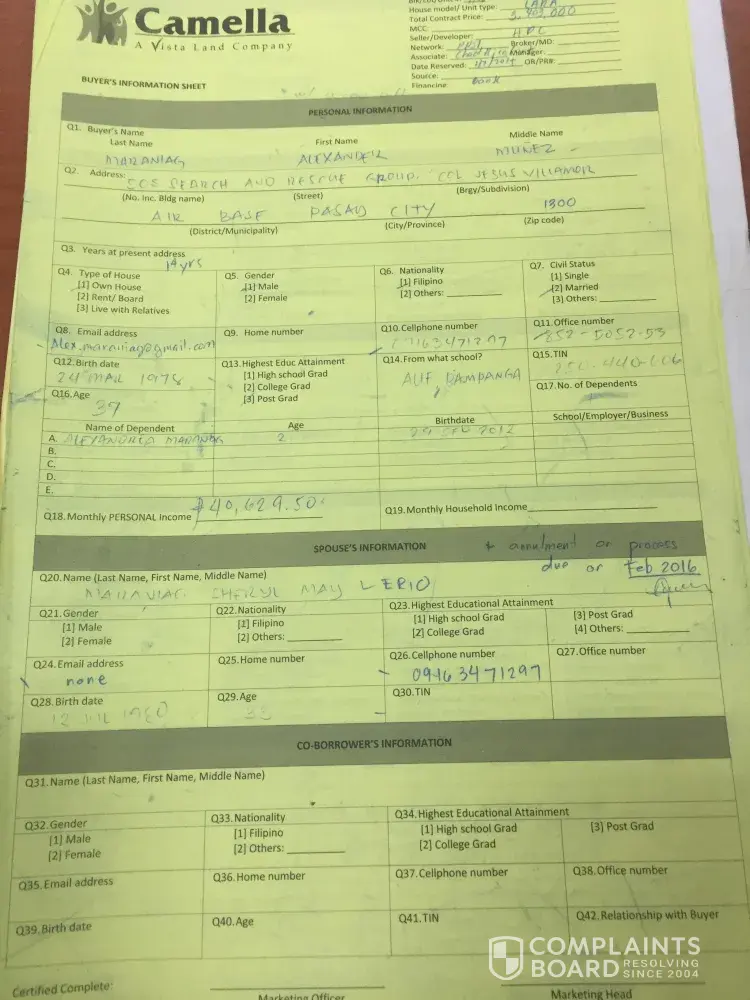 Camella
A Vista Land Company
House model/ Unit type: LARA
Total Contract Price: 3,
MCC:
Seller/Developer: HPC
Network: Broker/MD:
Associate: Manager:
Date Reserved: OR/PR#:
Source:
Financing: BANK
BUYER'S INFORMATION SHEET
PERSONAL INFORMATION
Q1. Buyer's Name
Last Name First Name Middle Name
MARANIAG ALEXANDER MUÑEZ
Q2. Address: SEARCH AND RESCUE GROUP, COL JESUS VILLAMOR
(No. Inc. Bldg name) (Street) (Brgy/Subdivision)
AIR BASE PASAY CITY 1300
(District/Municipality) (City/Province) (Zip code)
Q3. Years at present address 14 yrs
Q4. Type of House Q5. Gender Q6. Nationality Q7. Civil Status
[1] Own House [1] Male [1] Filipino [1] Single
[2] Rent/ Board [2] Female [2] Others: [2] Married
[3] Live with Relatives [3] Others:
Q8. Email address Q9. Home number Q10. Cellphone number Q11. Office number
Alex.maraniag@gmail.com 09163471297 852-5052-53
Q12. Birth date Q13. Highest Educ Attainment Q14. From what school? Q15. TIN
24 MAR 1975 [1] High school Grad AUF PAMPANGA
[2] College Grad Q17. No. of Dependents
Q16. Age [3] Post Grad
39
Name of Dependent Age Birthdate School/Employer/Business
A. MARANIAG 2 29 FEB 2012
B.
C.
D.
E.
Q18. Monthly PERSONAL Income ₱40,629.50 Q19. Monthly Household Income
SPOUSE'S INFORMATION * annulment on process
due on Feb 2016
Q20. Name (Last Name, First Name, Middle Name)
MARANIAG CHERYL MAY LERIO
Q21. Gender Q22. Nationality Q23. Highest Educational Attainment
[1] Male [1] Filipino [1] High school Grad [3] Post Grad
[2] Female [2] Others: [2] College Grad [4] Others:
Q24. Email address Q25. Home number Q26. Cellphone number Q27. Office number
none 09163471297
Q28. Birth date Q29. Age Q30. TIN
12 JUL 1980 33
CO-BORROWER'S INFORMATION
Q31. Name (Last Name, First Name, Middle Name)
Q32. Gender Q33. Nationality Q34. Highest Educational Attainment
[1] Male [1] Filipino [1] High school Grad [3] Post Grad
[2] Female [2] Others: [2] College Grad
Q35. Email address Q36. Home number Q37. Cellphone number Q38. Office number
Q39. Birth date Q40. Age Q41. TIN Q42. Relationship with Buyer
Certified Complete:
Marketing Officer Marketing Head
COMPLAINTS
BOARD RESOLVING SINCE 2004